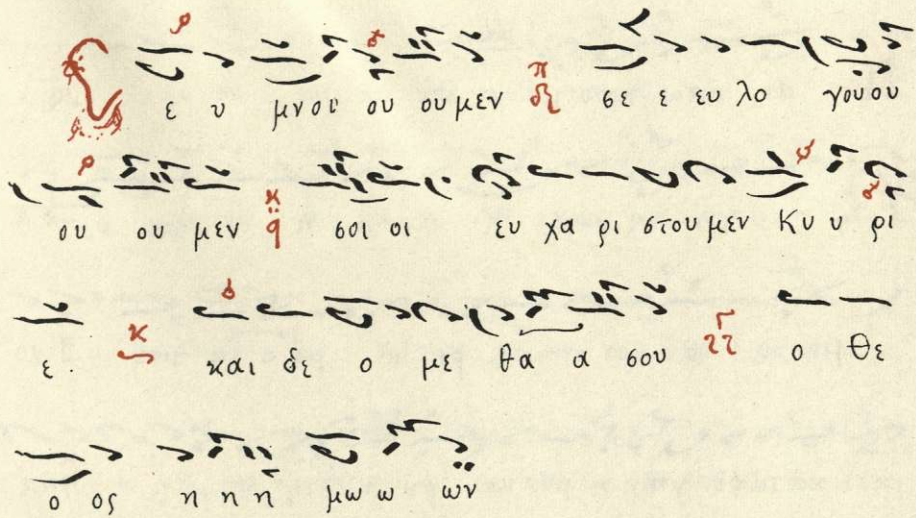 Σε υ μνου ου ου μεν σε ε ευ λο γου ου
ου ου μεν σοι οι ευ χα ρι στου μεν Κυ υ ρι
ε. και δε ο με θα α σου ο θε
ο ος η η η μω ω ων